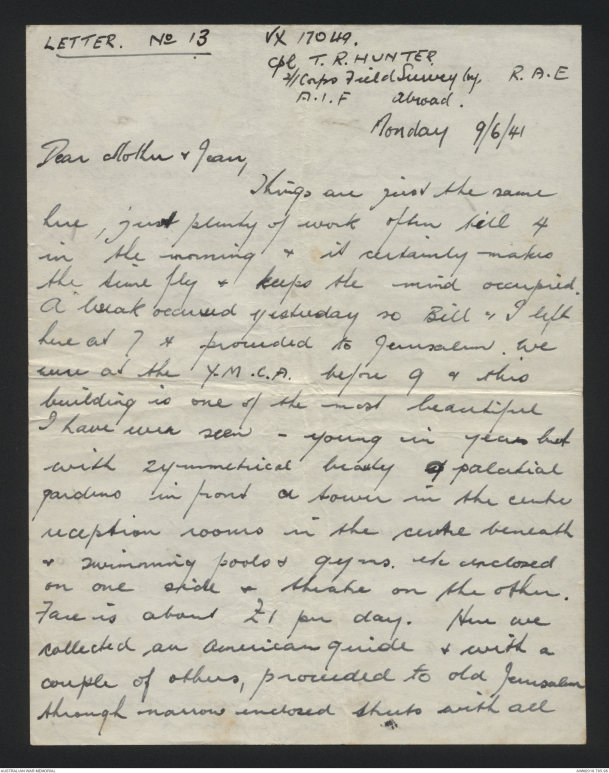 LETTER. No 13
VX 17049.
Cpl T. R. HUNTER
2/1 Corps Field Survey Coy. R.A.E
A.I.F abroad.
Monday 9/6/41
Dear Mother & Jean,
Things are just the same
here, just plenty of work often till 4
in the morning & it certainly makes
the time fly & keeps the mind occupied.
A break occured yesterday so Bill & I left
here at 7 & proceeded to Jerusalem. We
were at the Y.M.C.A. before 9 & this
building is one of the most beautiful
I have ever seen - young in years but
with symmetrical beauty & palatial
gardens in front a tower in the centre
reception rooms in the centre beneath
& swimming pools & gyms. etc enclosed
on one side & theatre on the other.
Fare is about £1 per day. Here we
collected an American guide & with a
couple of others, proceeded to old Jerusalem
through narrow enclosed streets with all
AUSTRALIAN WAR MEMORIAL